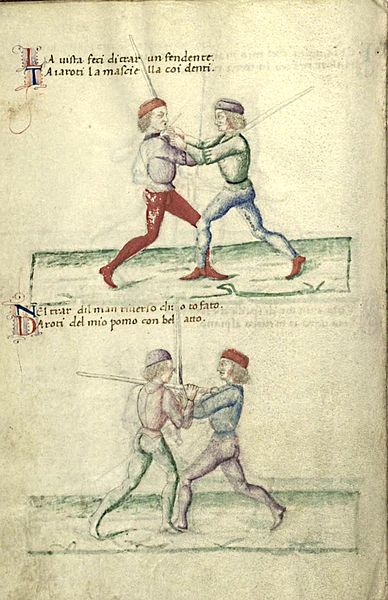 LA vista feci di trar un fendente.
TAiaroti la mascie lla coi denti.
NEl trar dil man riverso ch io to fato.
DAroti del mio pomo con bel atto.